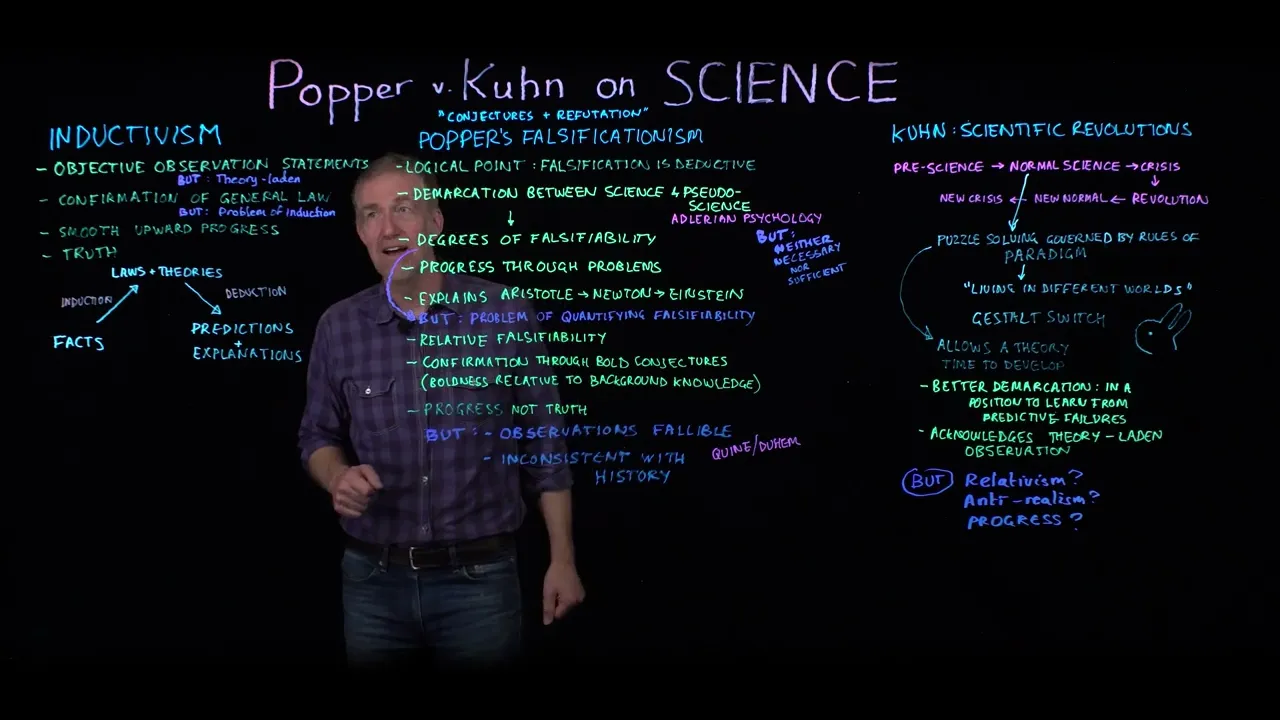 Popper v. Kuhn on SCIENCE
INDUCTIVISM
- OBJECTIVE OBSERVATION STATEMENTS
BUT: Theory-laden
- CONFIRMATION OF GENERAL LAW
BUT: Problem of induction
- SMOOTH UPWARD PROGRESS
- TRUTH
LAWS + THEORIES
INDUCTION
DEDUCTION
FACTS
PREDICTIONS
+
EXPLANATIONS
"CONJECTURES + REFUTATION"
POPPER'S FALSIFICATIONISM
- LOGICAL POINT: FALSIFICATION IS DEDUCTIVE
- DEMARCATION BETWEEN SCIENCE & PSEUDO-
SCIENCE
ADLERIAN PSYCHOLOGY
BUT:
NEITHER
NECESSARY
NOR
SUFFICIENT
- DEGREES OF FALSIFIABILITY
- PROGRESS THROUGH PROBLEMS
- EXPLAINS ARISTOTLE → NEWTON → EINSTEIN
BUT: PROBLEM OF QUANTIFYING FALSIFIABILITY
- RELATIVE FALSIFIABILITY
- CONFIRMATION THROUGH BOLD CONJECTURES
(BOLDNESS RELATIVE TO BACKGROUND KNOWLEDGE)
- PROGRESS NOT TRUTH
BUT: - OBSERVATIONS FALLIBLE
QUINE/DUHEM
- INCONSISTENT WITH
HISTORY
KUHN: SCIENTIFIC REVOLUTIONS
PRE-SCIENCE → NORMAL SCIENCE → CRISIS
NEW CRISIS ← NEW NORMAL ← REVOLUTION
PUZZLE SOLVING GOVERNED BY RULES OF
PARADIGM
"LIVING IN DIFFERENT WORLDS"
GESTALT SWITCH
ALLOWS A THEORY
TIME TO DEVELOP
- BETTER DEMARCATION: IN A
POSITION TO LEARN FROM
PREDICTIVE FAILURES
- ACKNOWLEDGES THEORY-LADEN
OBSERVATION
BUT Relativism?
Anti-realism?
PROGRESS?